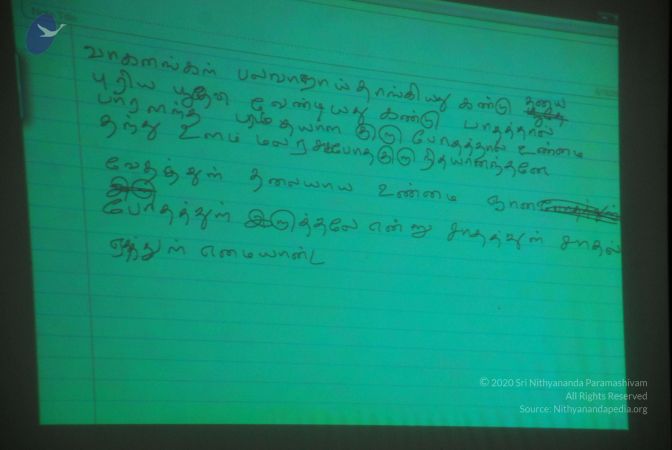 வாகனங்கள் பலவாறாய் தாங்கியது கண்டு
புரிய பூதேவி வேண்டியது கண்டு பாதத்தால்
பாரளந்த பரமதயாள குரு போதத்தால் உண்மை
தந்து உளம் மலர நித்யானந்தனே
வேதத்துள் தலையாய உண்மை ஞான
போதத்துள் இருத்தலே என்று சாதத்துள் சாதல்
எமையாண்ட
© 2020 Sri Nithyananda Paramashivam
All Rights Reserved
Source: Nithyanandapedia.org